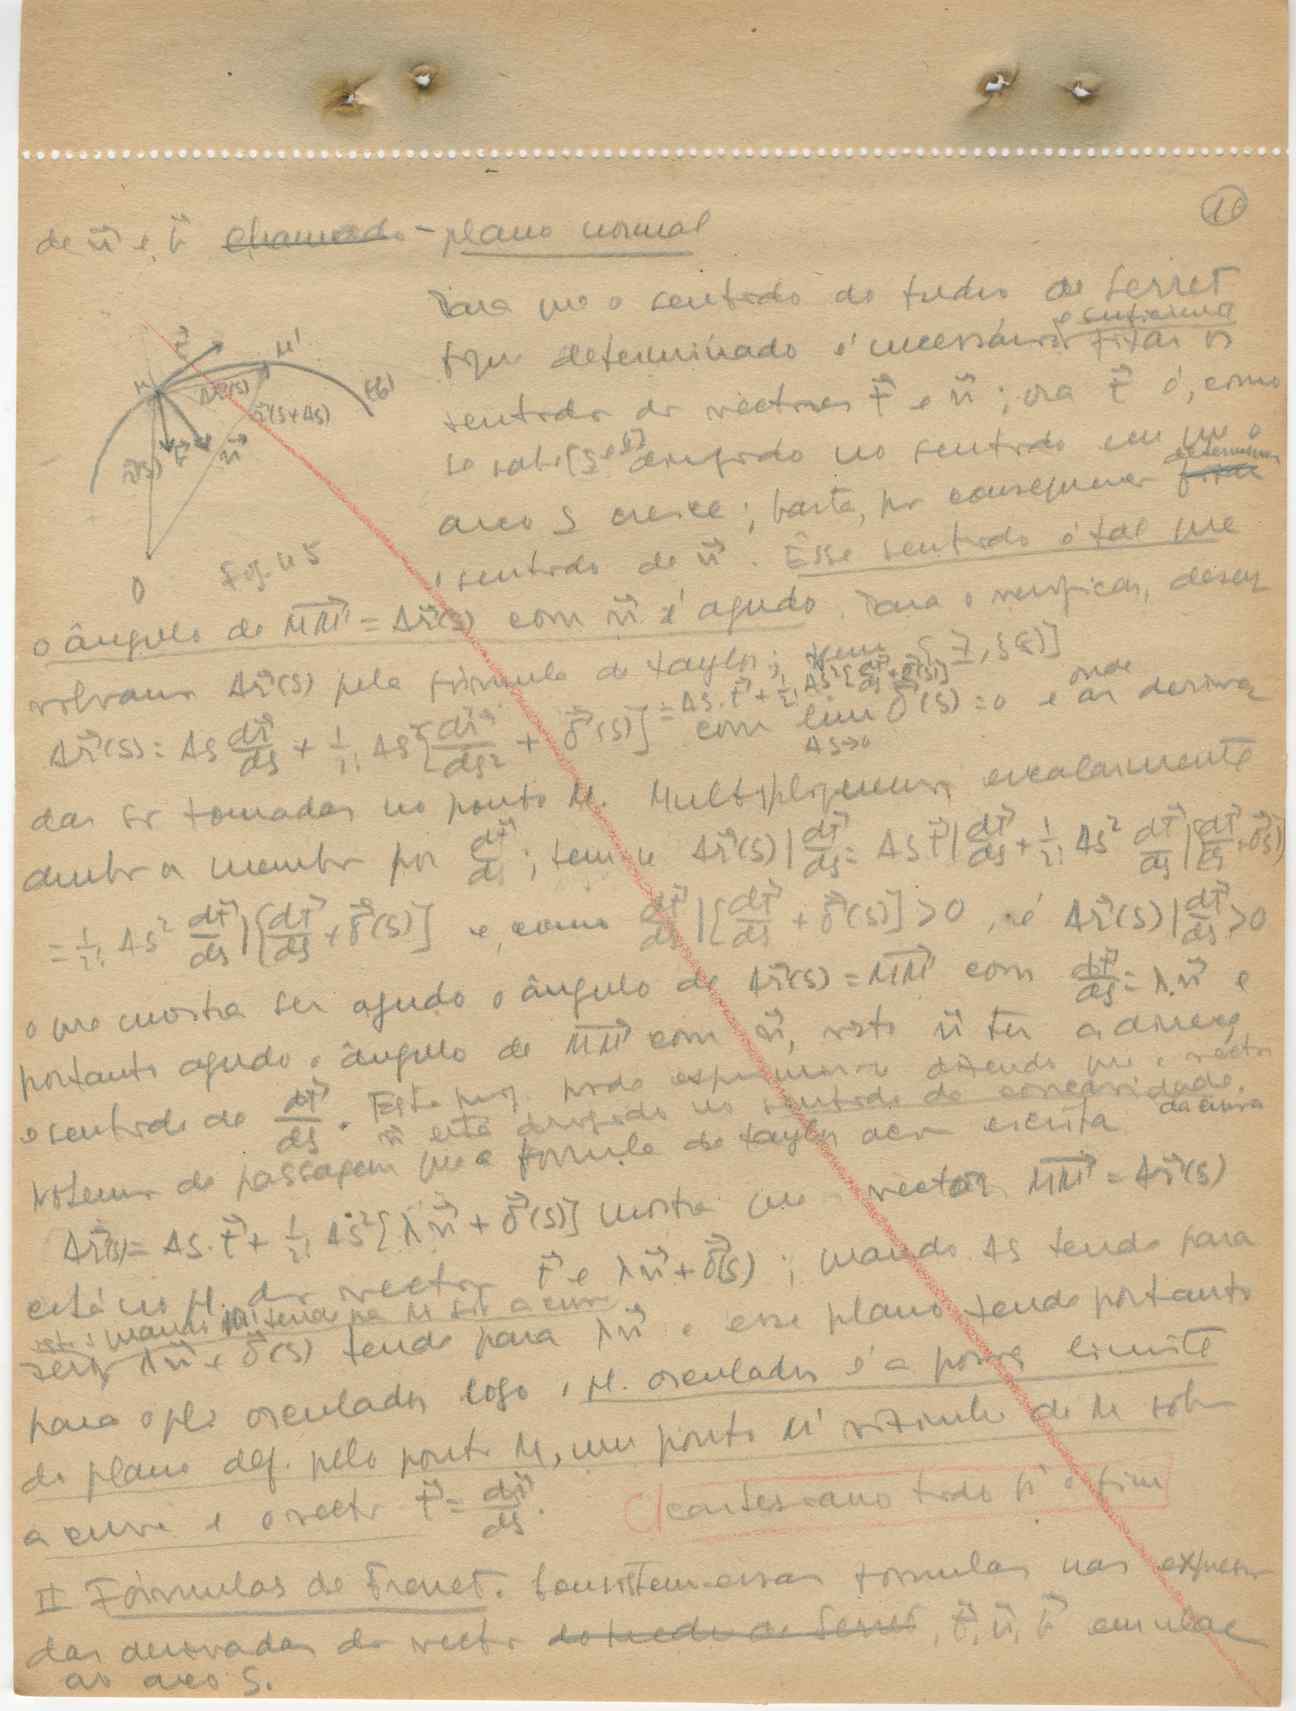 10
de n⃗ e b⃗ chamado - plano normal
Para que o sentido do triedro de Serret
fique determinado é necessário e suficiente fixar os
sentidos dos vectores t⃗ e n⃗ ; ora t⃗ é, como
se sabe dirigido no sentido em que o
arco s cresce ; basta, por conseguinte fixar determinar
o sentido de n⃗ . Êsse sentido é tal que
t⃗ M M' (C) Δr⃗(s) r⃗(s+Δs) r⃗(s) b⃗ n⃗
O Fig. n 5
o ângulo de MM'⃗ = Δr⃗(s) com n⃗ é agudo. Para o verificar, desen
volvamos Δr⃗(s) pela fórmula de Taylor;
= Δs.t⃗ + 1/2! Δs² [dt⃗/ds + δ⃗(s)]
Δr⃗(s) = Δs dr⃗/ds + 1/2! Δs² [d²r⃗/ds² + δ⃗(s)] com lim Δs→0 δ⃗(s) = 0 e onde as deriva
das são tomadas no ponto M. Multipliquemos escalarmente
ambos os membros por dt⃗/ds ; tem-se Δr⃗(s)|dt⃗/ds = Δs t⃗|dt⃗/ds + 1/2! Δs² dt⃗/ds|[dt⃗/ds + δ⃗(s)]
= 1/2! Δs² dt⃗/ds|[dt⃗/ds + δ⃗(s)] e, como dt⃗/ds|[dt⃗/ds + δ⃗(s)] > 0, é Δr⃗(s)|dt⃗/ds > 0
o que mostra ser agudo o ângulo de Δr⃗(s) = MM'⃗ com dt⃗/ds = λn⃗ e
portanto agudo o ângulo de MM'⃗ com n⃗, visto n⃗ ter a direcç
e sentido de dt⃗/ds. Esta prop. pode exprimir-se dizendo que o vector
n⃗ está dirigido no sentido da concavidade da curva.
Notemos de passagem que a fórmula de Taylor acima escrita
Δr⃗(s) = Δs.t⃗ + 1/2! Δs² [λn⃗ + δ⃗(s)] mostra que o vector MM'⃗ = Δr⃗(s)
está no pl. dos vectores t⃗ e λn⃗ + δ⃗(s) ; quando Δs tende para
zero isto é: quando M' tende para M sobre a curva λn⃗ + δ⃗(s) tende para λn⃗ e esse plano tende portanto
para o pl. osculador logo o pl. osculador é a posição limite
do plano def. pelo ponto M, um ponto M' vizinho de M sobre
a curva e o vector t⃗ = dr⃗/ds.
cartesiano tudo p'ó fim
II Fórmulas de Frenet. Consistem essas fórmulas nas expres
das derivadas dos vectores do triedro de Serret, t⃗, n⃗, b⃗ em relaç
ao arco s.